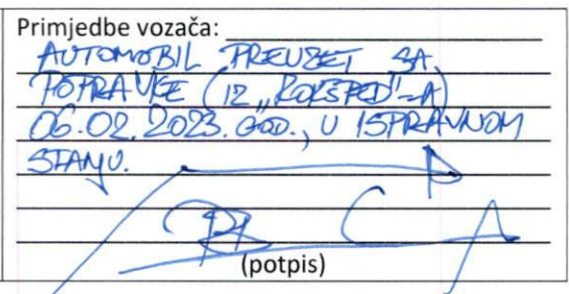 Primjedbe vozača:
AUTOMOBIL PREUZET SA
POPRAVKE (IZ „ROKŠPED"-A)
06.02.2023. GOD., U ISPRAVNOM
STANJU.
(potpis)